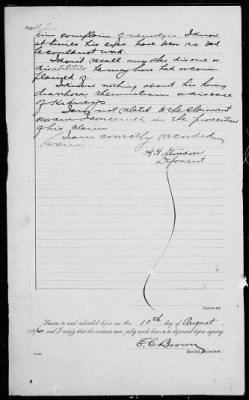 Page
him complain of neuralgia. I know
at times his eyes have been so bad
he couldn't work.
I don't recall any other disease or
disabilities he may have had or com-
plained of.
I know nothing about his having
diarrhoea, rheumatism or disease
of kidneys.
I am not related to the claimant
or am I concerned in the prosecution
of his claim.
I am correctly recorded
herein
Deponent
Deponent.
Sworn to and subscribed before me this 15th day of August,
and I certify that the contents were fully made known to deponent before signing.
E. C. Brown
Special Examiner.